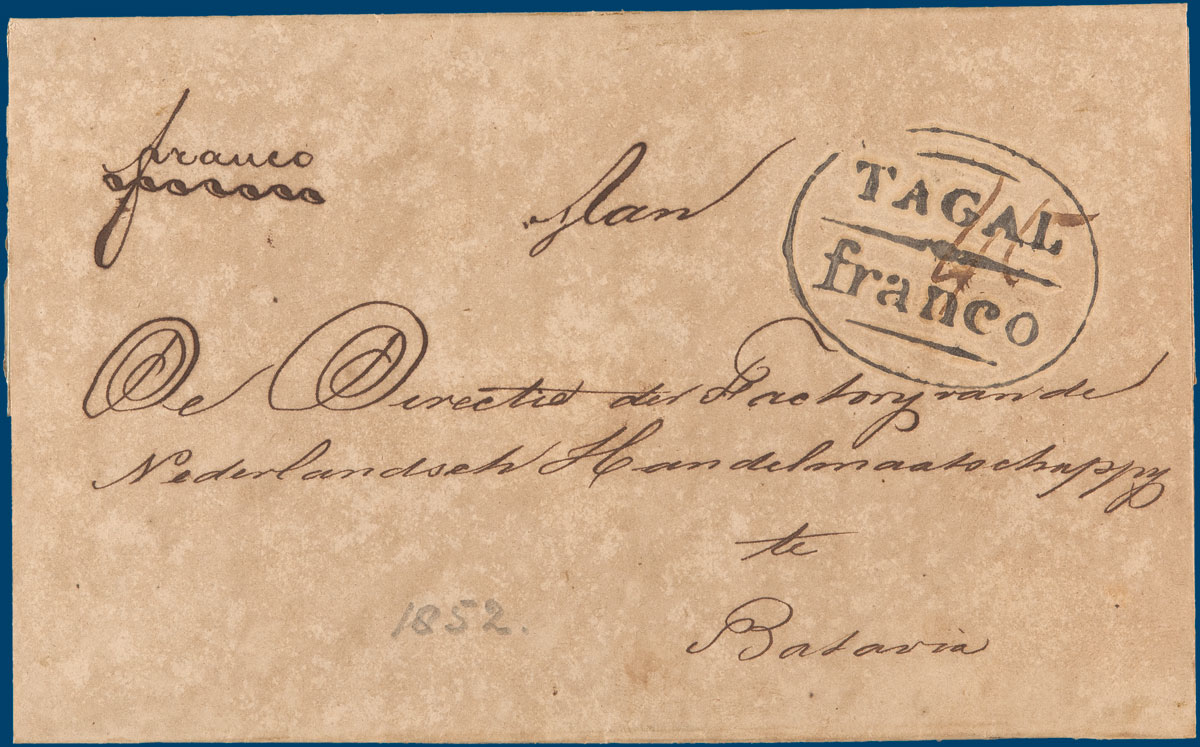 franco
Aan
TAGAL
franco
De Directie der Factory van de
Nederlandsch Handelmaatschappy
te
Batavia
1852.